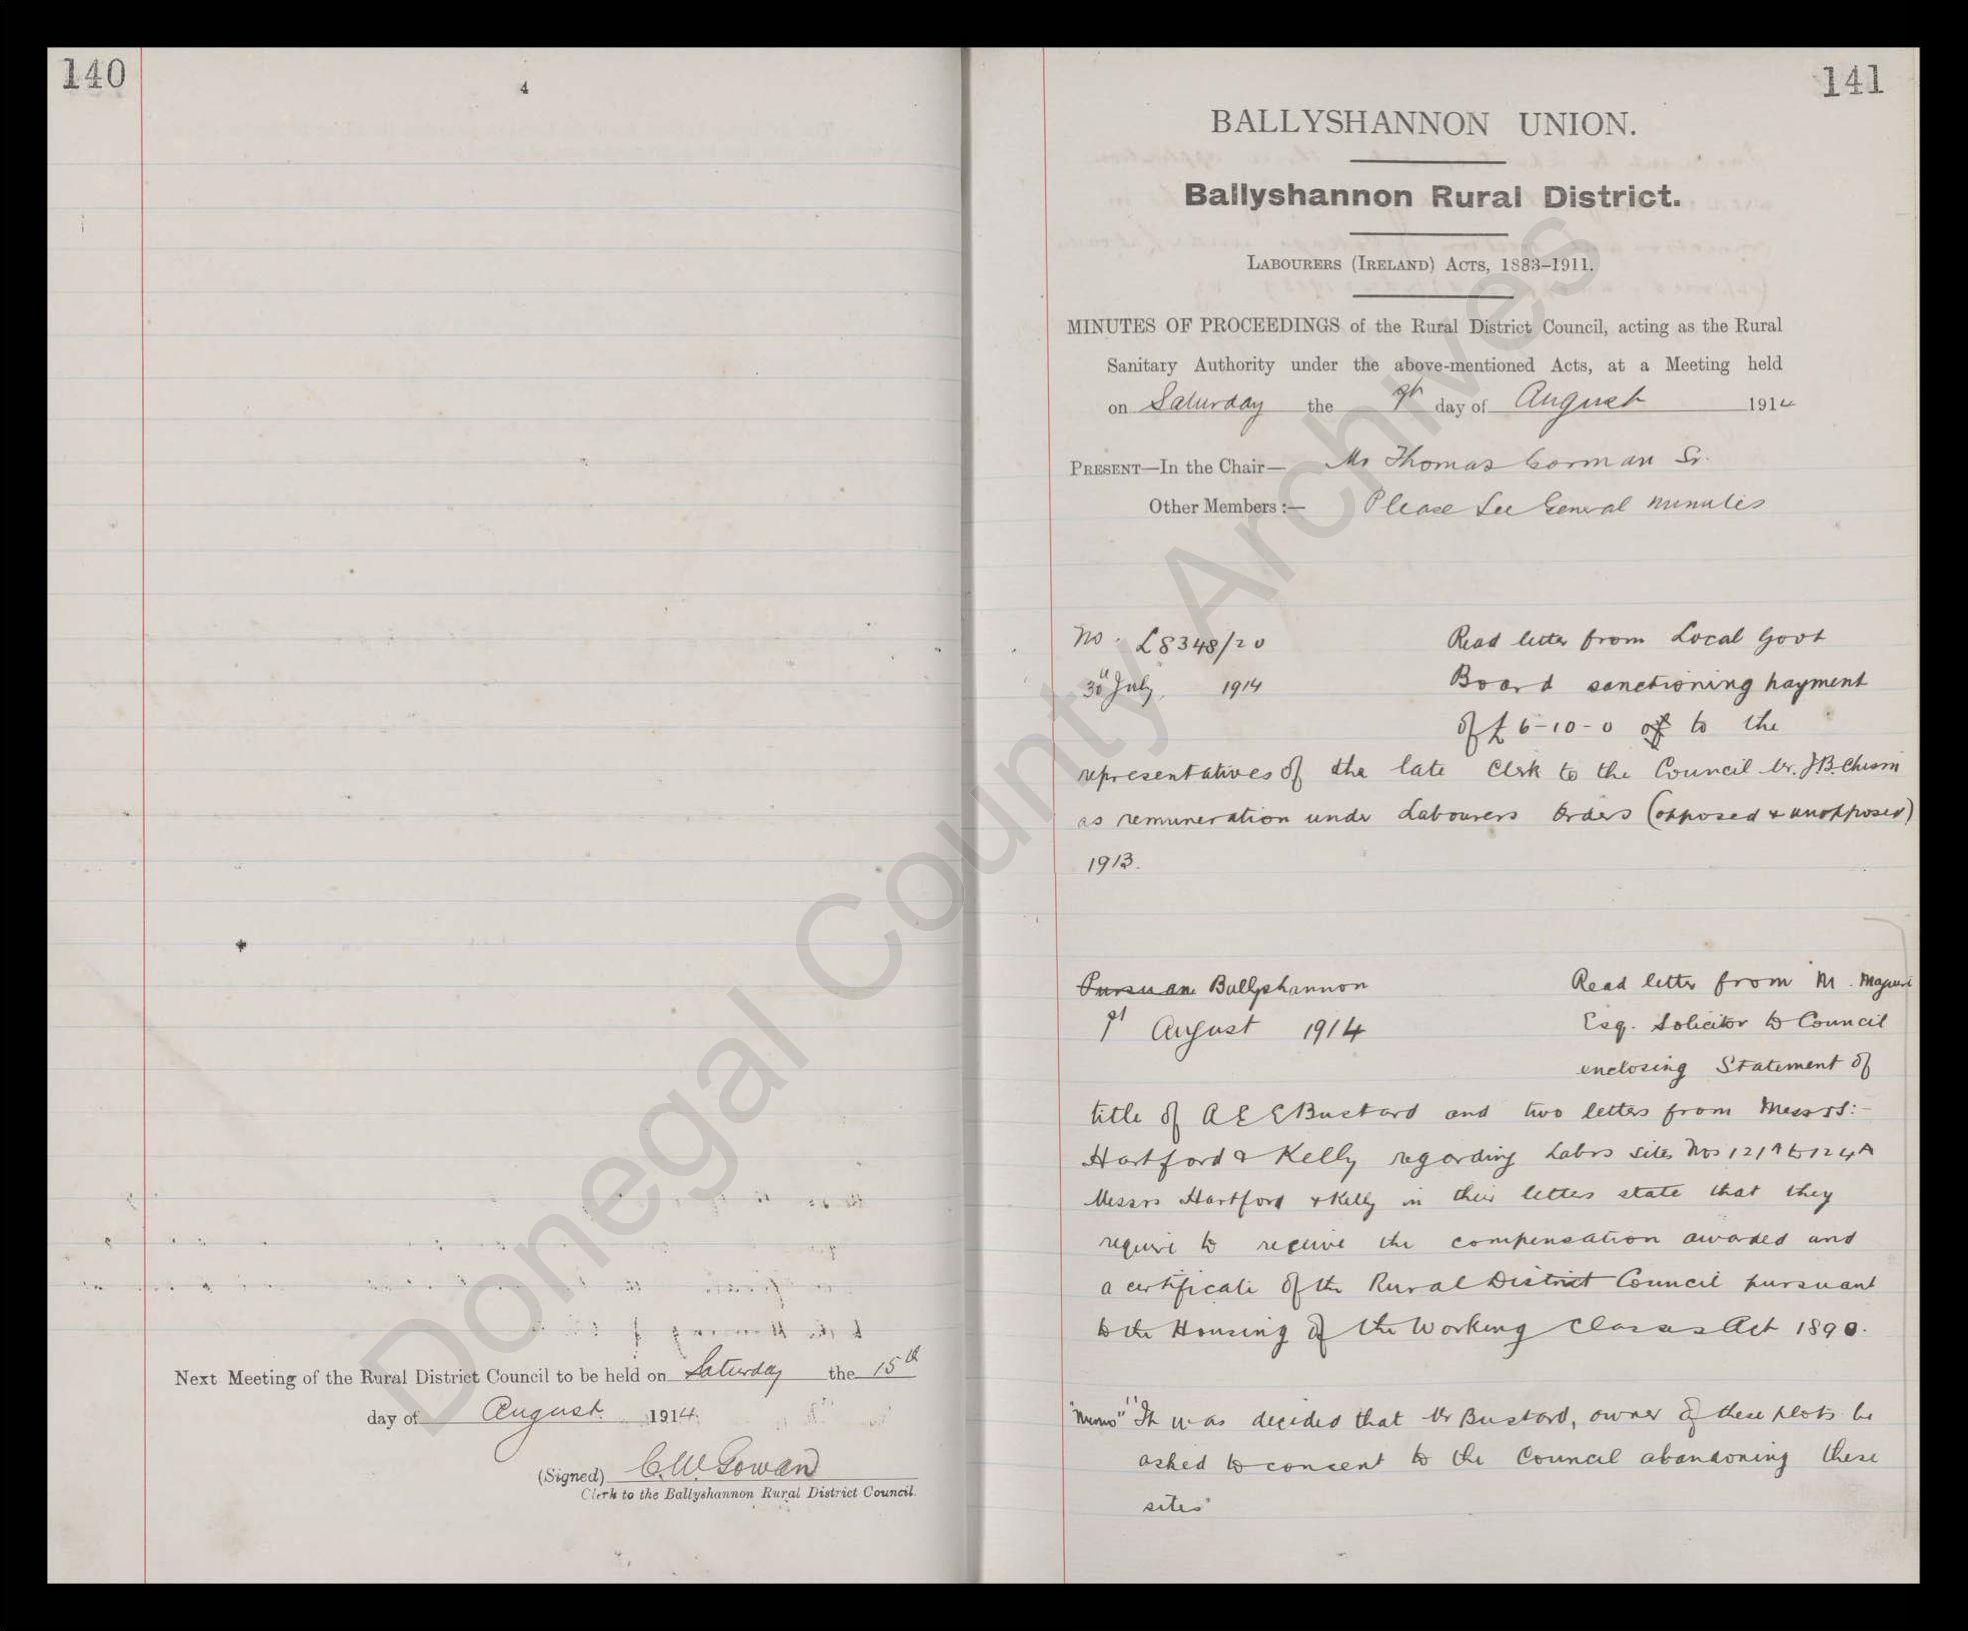 140
4
Next Meeting of the Rural District Council to be held on Saturday the 15th
day of August 1914
(Signed) C. McGowan
Clerk to the Ballyshannon Rural District Council.
141
BALLYSHANNON UNION.
Ballyshannon Rural District.
LABOURERS (IRELAND) ACTS, 1883–1911.
MINUTES OF PROCEEDINGS of the Rural District Council, acting as the Rural
Sanitary Authority under the above-mentioned Acts, at a Meeting held
on Saturday the day of August 1914
PRESENT—In the Chair— Mr Thomas Gorman Sr.
Other Members :— Please See General Minutes
No. L8348/20 Read letter from Local Govt
30th July, 1914 Board sanctioning payment
of £6-10-0 of to the
representatives of the late Clerk to the Council Mr. J.B.
as remuneration under Labourers Orders (opposed & unopposed)
1913.
Pursuan Ballyshannon Read letter from M. Maguire
August 1914 Esq. Solicitor to Council
enclosing Statement of
title of A E E Bustard and two letters from Messrs:-
Hartford & Kelly regarding Labrs sites Nos 121A to 124A
Messrs Hartford & Kelly in their letters state that they
require to receive the compensation awarded and
a certificate of the Rural District Council pursuant
to the Housing of the Working Classes Act 1890.
"Mins" "It was decided that Mr Bustard, owner of these plots be
asked to consent to the Council abandoning these
sites"
Donegal County Archives